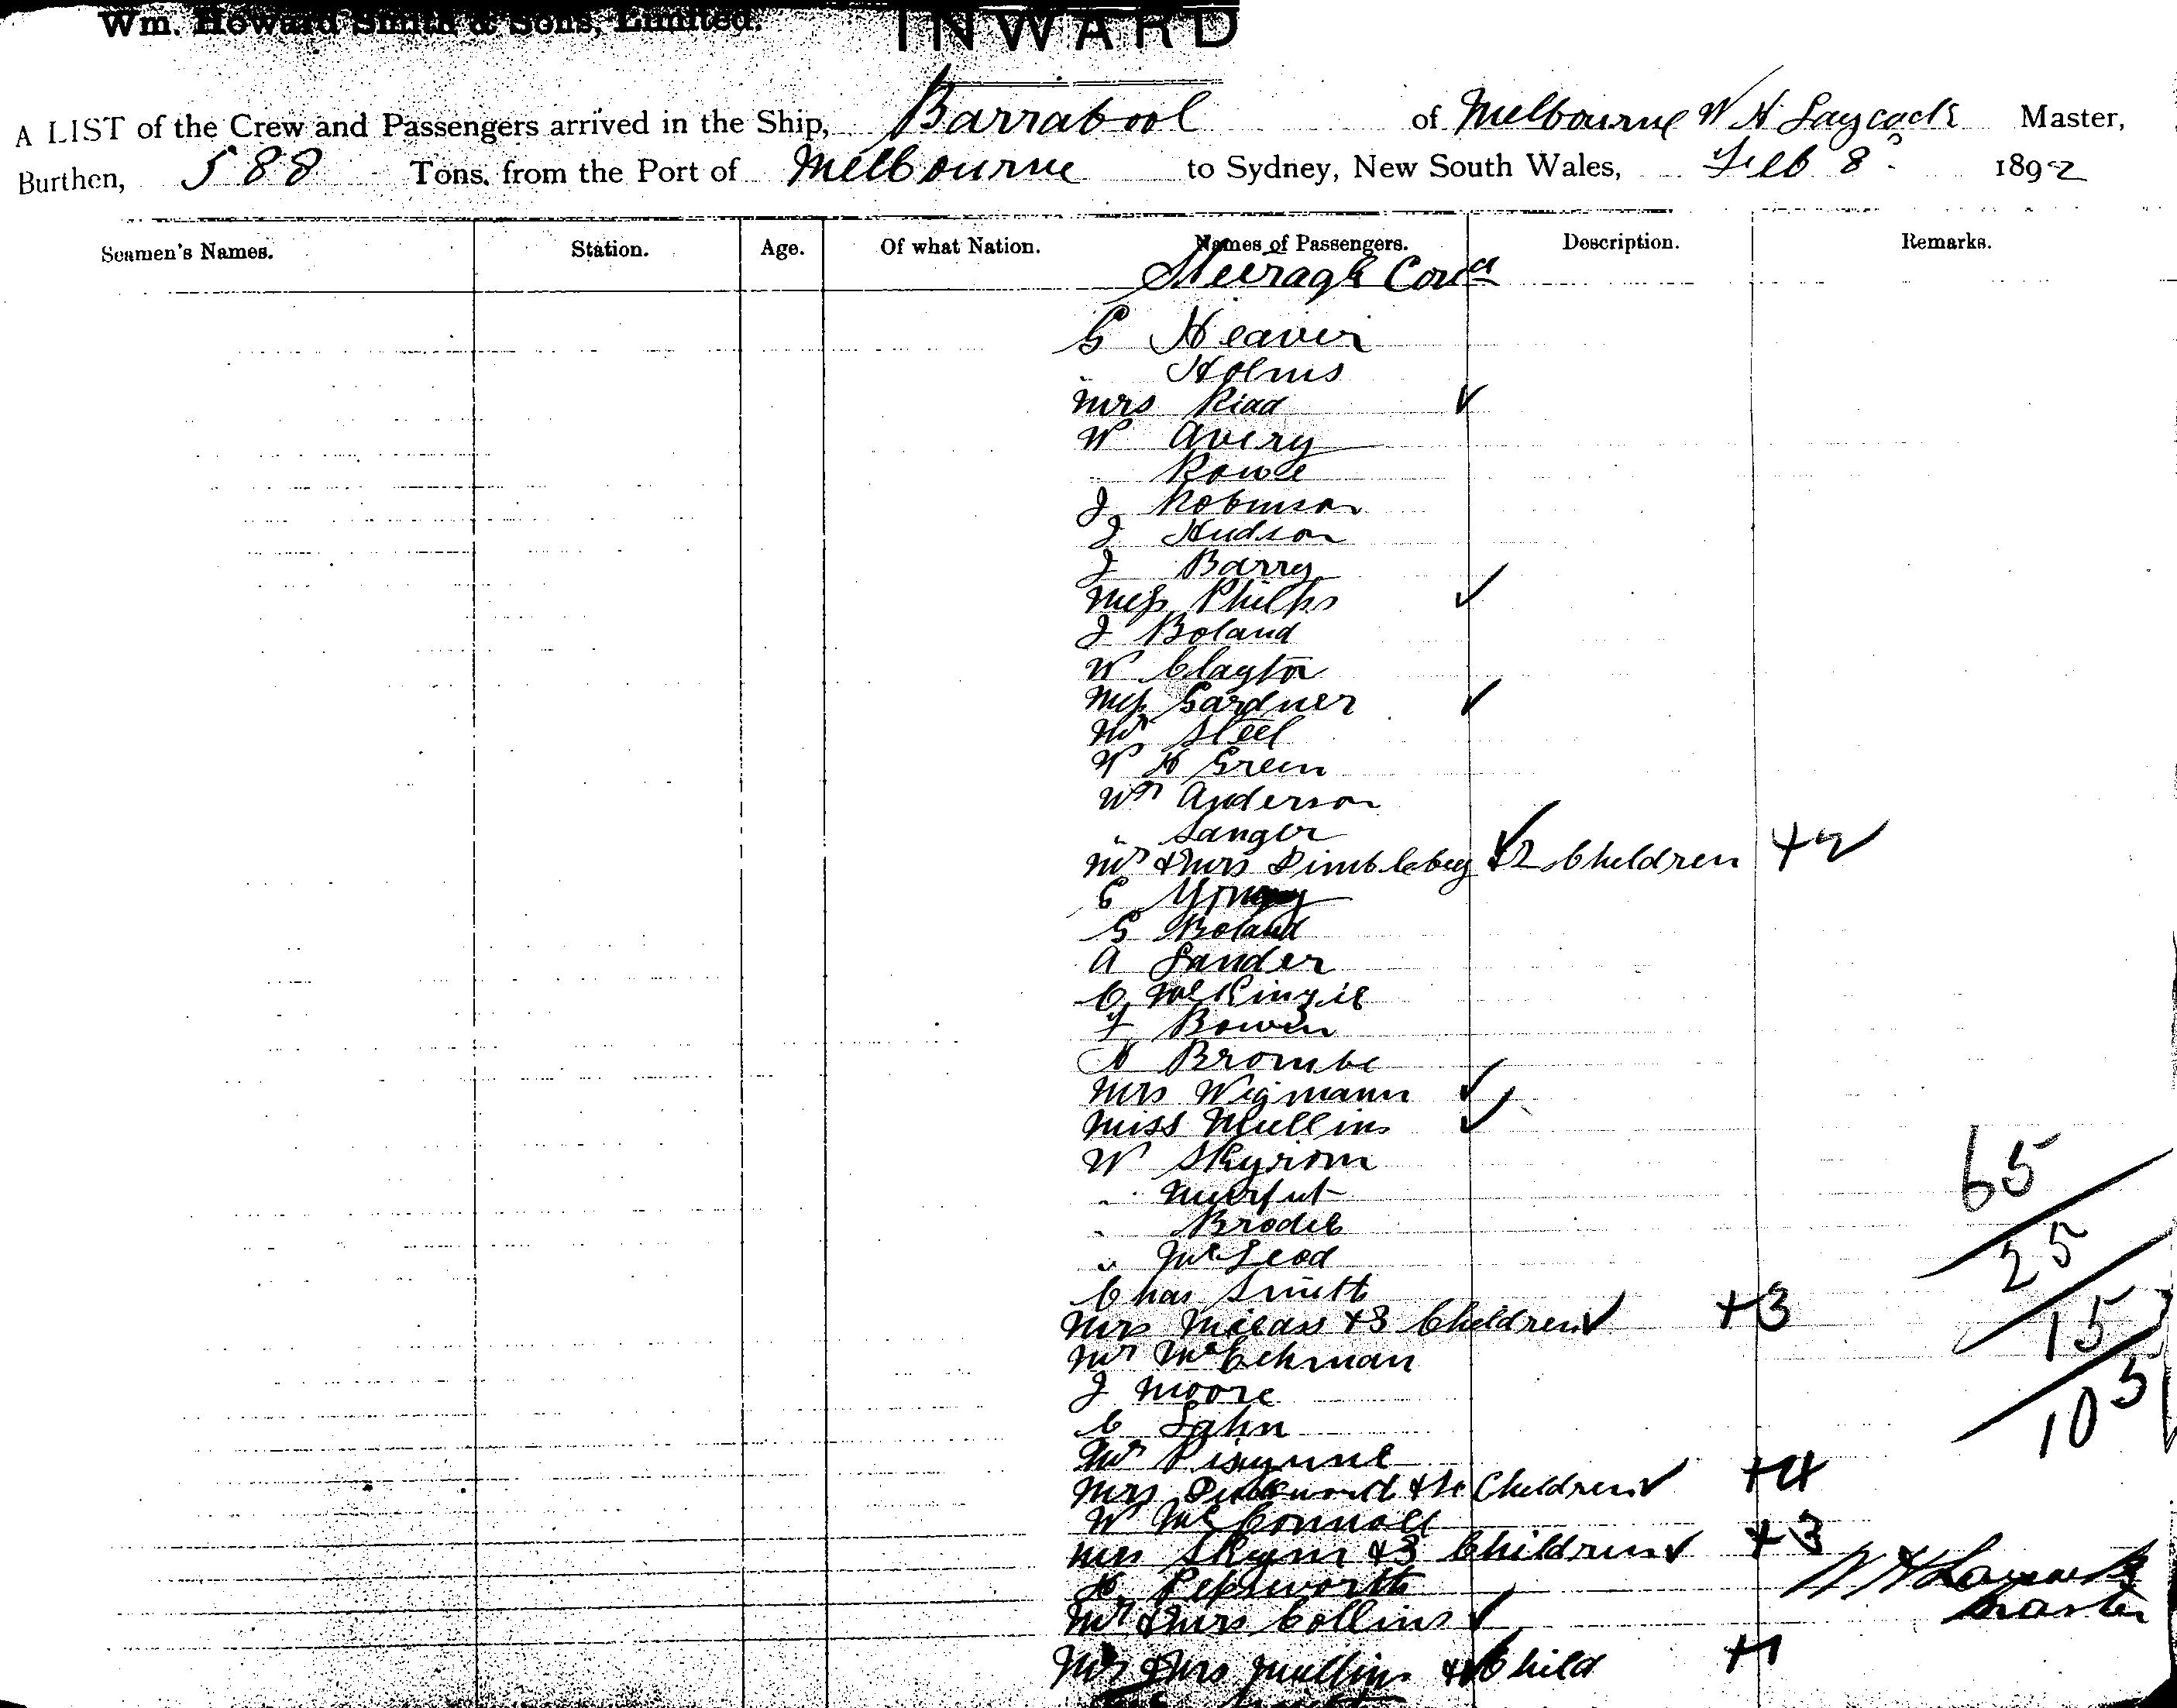 Wm. Howard Smith & Sons, Limited.
INWARD
A LIST of the Crew and Passengers arrived in the Ship, Barrabool of Melbourne W H Laycock Master,
Burthen, 588 Tons, from the Port of Melbourne to Sydney, New South Wales, Feb 8 1892
Seamen's Names. Station. Age. Of what Nation. Names of Passengers. Description. Remarks.
Steerage
G Heaver
" Holms
Mrs Riad
W Avery
" Rowe
J Robinson
J Hudson
J Barry
Miss Philps
J Boland
W Clayton
Miss Gardner
Mr Steel
W H Green
Wm Anderson
" Sanger
Mr & Mrs Dimbleby & 2 Children +2
C Young
G Boland
A Sander
C McKinzie
J Bowen
H Brombe
Mrs Wigmann
Miss Mullins
W Skyrom
" Murfut
" Brodie
" McLeod
Chas Smith
Mrs & 3 Children +3
Mr
J Moore
C Lahn
Mr
Mrs & 4 Children +4
W McConnoll
Mrs Skyrm & 3 Children +3
H Pepsworth
Mr & Mrs Collins
Mr & Mrs Mullins & Child +1
65
25
15
105
W H Laycock
Master